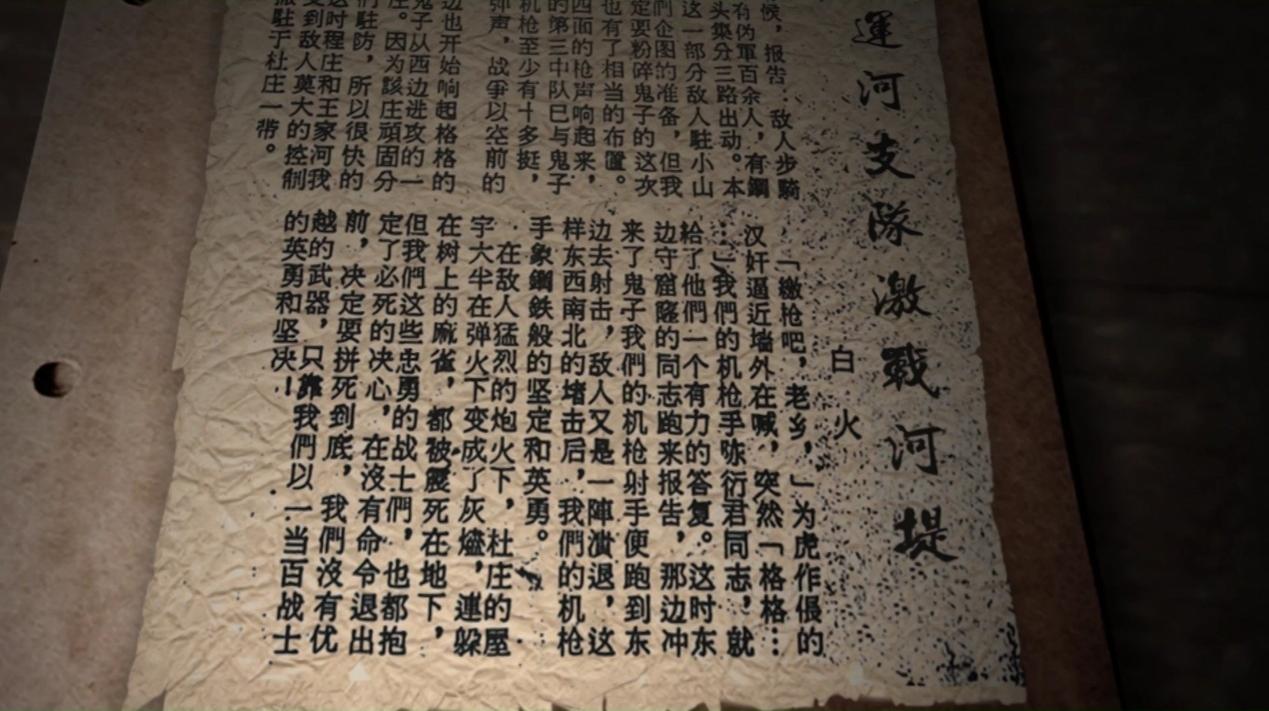 運河支隊激戰河堤
白火
候，报告：敌人步騎
有伪軍百余人，有鋼
头集分三路出动。本
这一部分敌人駐小山
們企图的准备，但我
定要粉碎鬼子的这次
也有了相当的布置。
四面的枪声响起来，
的第三中队已与鬼子
机枪至少有十多挺，
弹声，战爭以空前的
边也开始响起格格的
鬼子从西边进攻的一
庄。因为該庄頑固分
們駐防，所以很快的
这时程庄和王家河我
受到敌人莫大的控制
駐于杜庄一帶。
「繳枪吧，老乡，」为虎作倀的
汉奸逼近墙外在喊，突然「格格…
…」我們的机枪手衍君同志，就
給了他們一个有力的答复。这时东
边守窟窿的同志跑来报告，那边冲
来了鬼子我們的机枪射手便跑到东
边去射击，敌人又是一陣潰退，这
样东西南北的堵击后，我們的机枪
手象鋼鉄般的坚定和英勇。
在敌人猛烈的炮火下，杜庄的屋
宇大半在弹火下变成了灰燼，連躲
在树上的麻雀，都被震死在地下，
但我們这些忠勇的战士們，也都抱
定了必死的决心，在沒有命令退出
前，决定要拼死到底，我們沒有优
越的武器，只靠我們以一当百战士
的英勇和坚决！